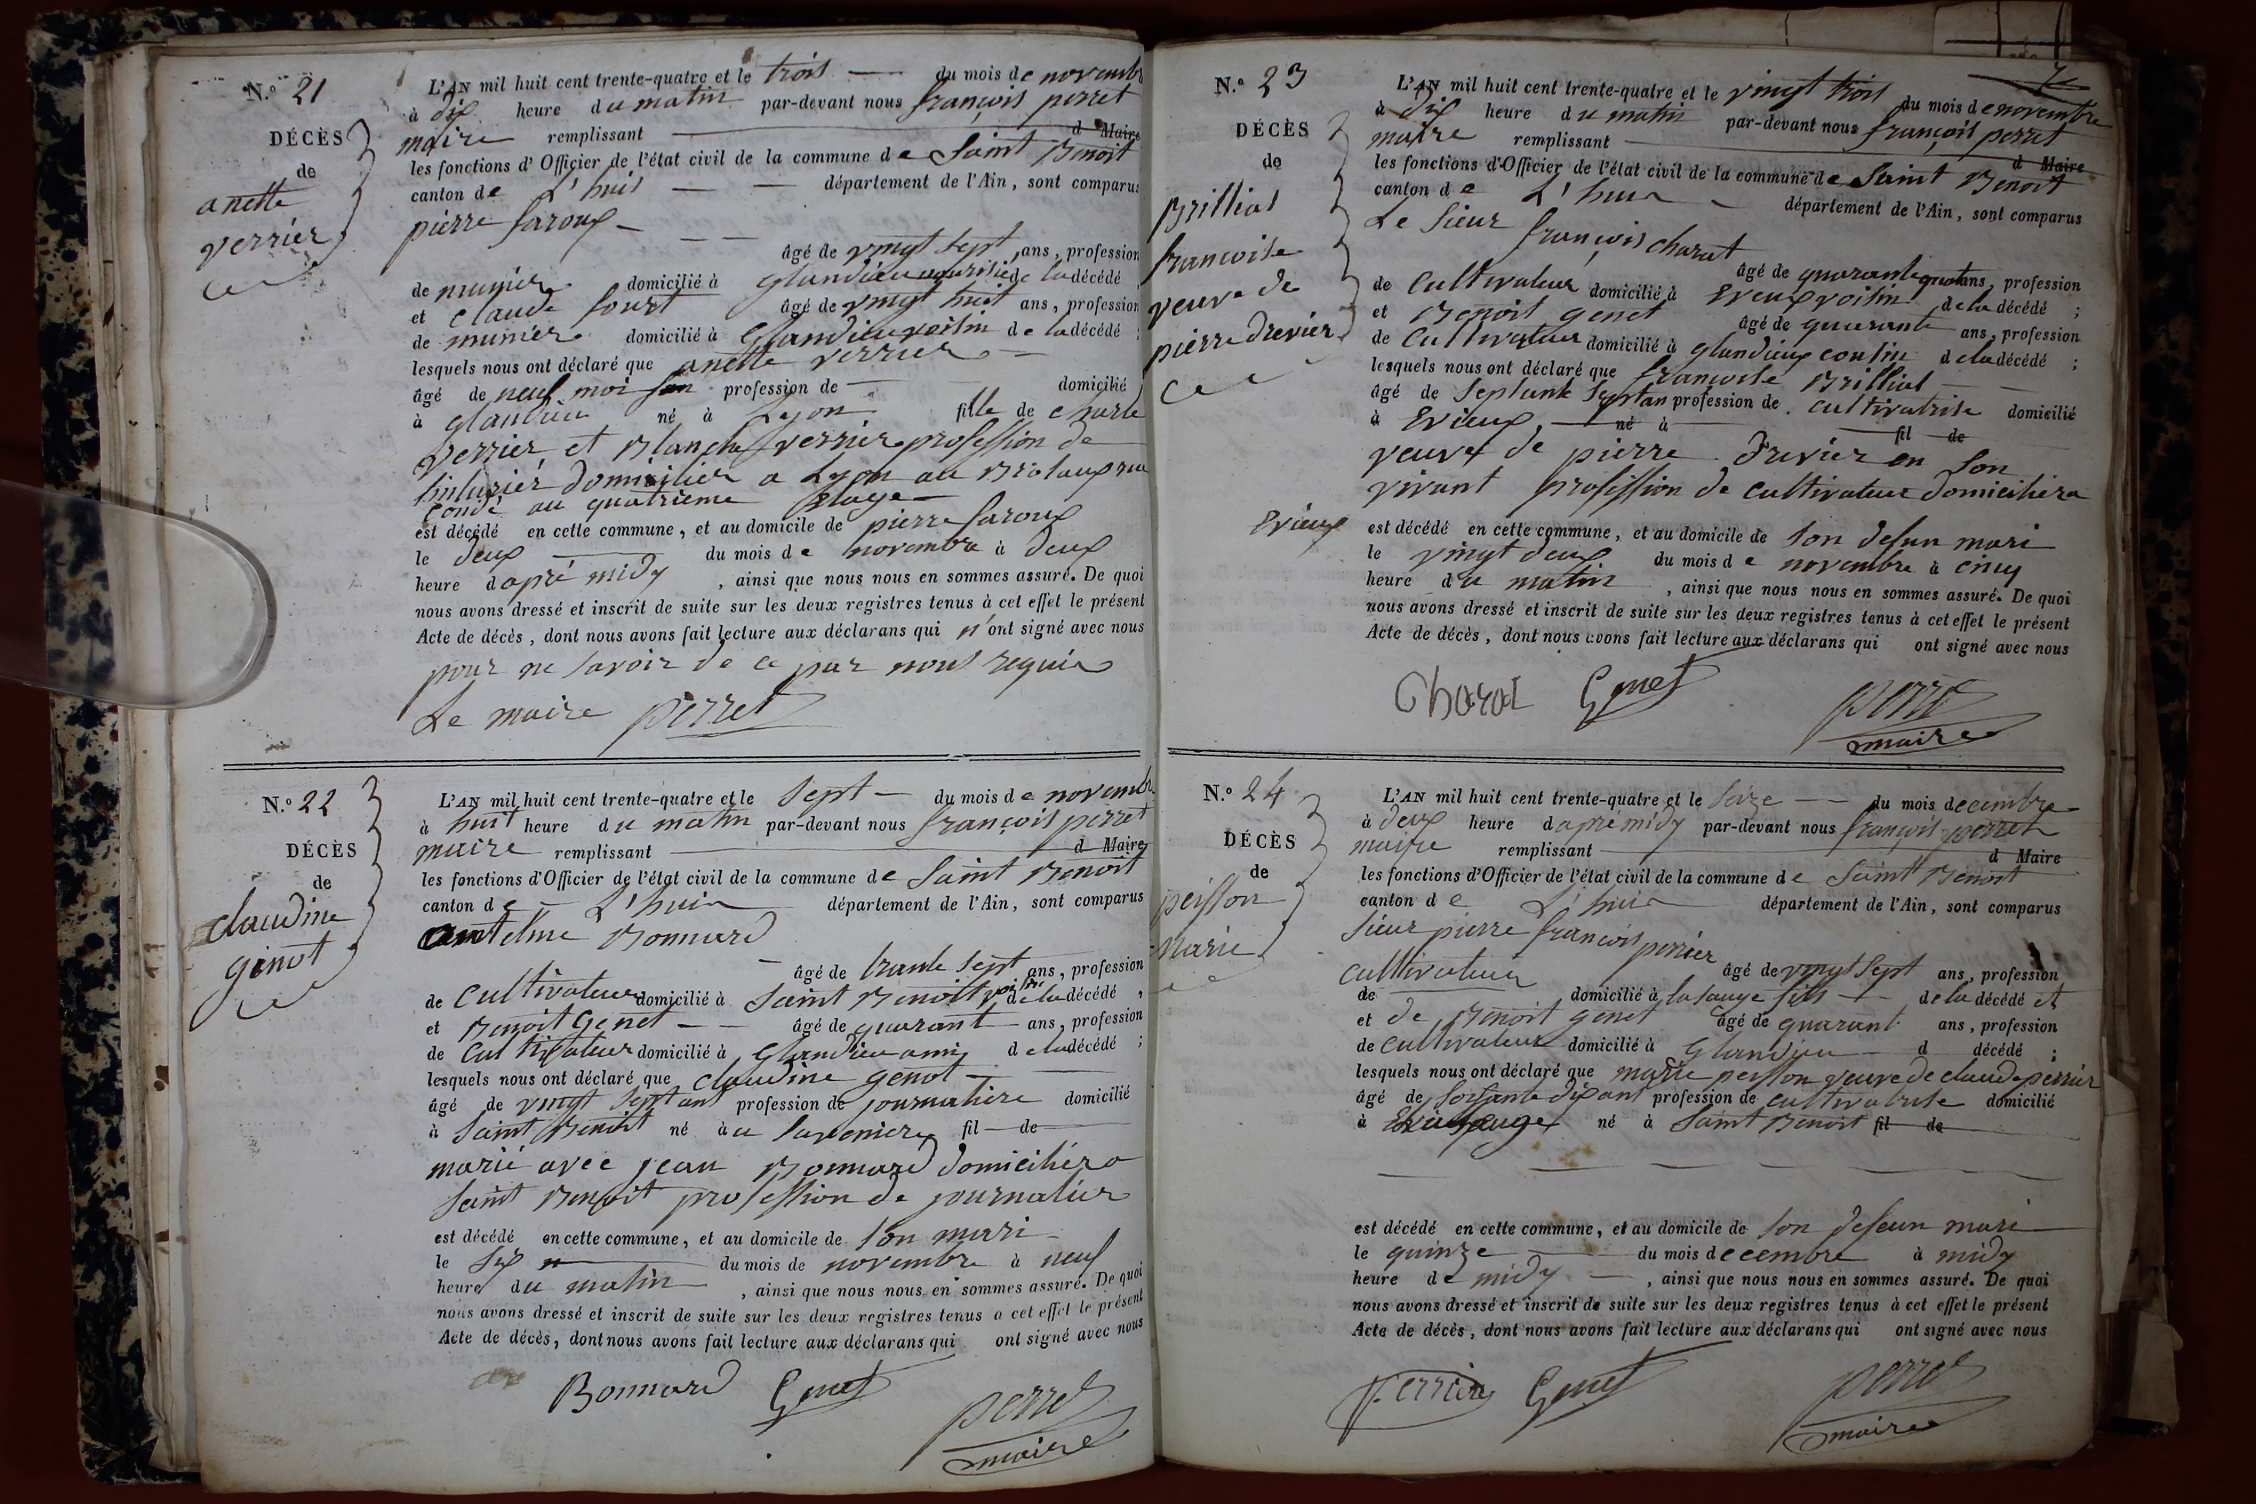 N.º 21
DÉCÈS
de
anette
verrier
L'AN mil huit cent trente-quatre et le trois du mois de novembre
à dix heure du matin par-devant nous françois perret
maire remplissant d Maire
les fonctions d'Officier de l'état civil de la commune de Saint Benoit
canton de L'huis département de l'Ain, sont comparus
pierre faroux
âgé de vingt sept ans, profession
de munier domicilié à glandieu nourisie de la décédé
et claude fourt âgé de vingt huit ans, profession
de munier domicilié à Glandieu voisin de la décédé ;
lesquels nous ont déclaré que anette verrier
âgé de neuf moi profession de domicilié
à glandieu né à Lyon fille de charle
verrier et Blanche verrier profession de
tinturier domicilier a Lyon au Brotaux rue
condé au quatrieme Etage
est décédé en cette commune, et au domicile de pierre faroux
le deux du mois de novembre à deux
heure d apré midy, ainsi que nous nous en sommes assuré. De quoi
nous avons dressé et inscrit de suite sur les deux registres tenus à cet effet le présent
Acte de décès, dont nous avons fait lecture aux déclarans qui n'ont signé avec nous
pour ne savoir de ce par nous requis
Le maire perret
N.º 22
DÉCÈS
de
claudine
genot
L'AN mil huit cent trente-quatre et le sept du mois de novembre
à huit heure du matin par-devant nous françois perret
maire remplissant d Maire
les fonctions d'Officier de l'état civil de la commune de Saint Benoit
canton de L'huis département de l'Ain, sont comparus
antelme Bonnard
âgé de trante sept ans, profession
de cultivateur domicilié à Saint Benoit voisin de la décédé ,
et Benoit Genet âgé de quarant ans, profession
de cultivateur domicilié à Glandieu ami de la décédé ;
lesquels nous ont déclaré que claudine genot
âgé de vingt sept ans profession de journaliére domicilié
à Saint Benoit né à fil de
marié avec jean Bonnard domicilié a
Saint Benoit profession de journalier
est décédé en cette commune, et au domicile de son mari
le six du mois de novembre à neuf
heure du matin, ainsi que nous nous en sommes assuré. De quoi
nous avons dressé et inscrit de suite sur les deux registres tenus à cet effet le présent
Acte de décès, dont nous avons fait lecture aux déclarans qui ont signé avec nous
Bonnard Genet perret
maire
N.º 23
DÉCÈS
de
Brilliat
francoise
veuve de
pierre drevier
L'AN mil huit cent trente-quatre et le vingt trois du mois de novembre
à dix heure du matin par-devant nous françois perret
maire remplissant d Maire
les fonctions d'Officier de l'état civil de la commune de Saint Benoit
canton de L'huis département de l'Ain, sont comparus
Le sieur françois charat
âgé de quarante quat ans, profession
de cultivateur domicilié à Evieux voisin de la décédé ;
et Benoit genet âgé de quarante ans, profession
de cultivateur domicilié à glandieux cousin de la décédé ;
lesquels nous ont déclaré que françoise Brilliat
âgé de septante sept an profession de cultivatrise domicilié
à Evieux né à fil de
veuve de pierre drevier en son
vivant profession de cultivateur domicilié a
Evieux
est décédé en cette commune, et au domicile de son defun mari
le vingt deux du mois de novembre à cinq
heure du matin, ainsi que nous nous en sommes assuré. De quoi
nous avons dressé et inscrit de suite sur les deux registres tenus à cet effet le présent
Acte de décès, dont nous avons fait lecture aux déclarans qui ont signé avec nous
Charat Genet perret
maire
N.º 24
DÉCÈS
de
peisson
marie
L'AN mil huit cent trente-quatre et le seize du mois decembre
à deux heure d apré midy par-devant nous françois perret
maire remplissant d Maire
les fonctions d'Officier de l'état civil de la commune de Saint Benoit
canton de L'huis département de l'Ain, sont comparus
sieur pierre françois perrier
cultivateur âgé de vingt sept ans, profession
de domicilié à la sauge fils de la décédé et
et de Benoit genet âgé de quarant ans, profession
de cultivateur domicilié à Glandieu d décédé ;
lesquels nous ont déclaré que marie peisson veuve de claude perrier
âgé de soisante dix ant profession de cultivatrise domicilié
à né à Saint Benoit fil de
est décédé en cette commune, et au domicile de son defeun mari
le quinze du mois decembre à midy
heure de midy, ainsi que nous nous en sommes assuré. De quoi
nous avons dressé et inscrit de suite sur les deux registres tenus à cet effet le présent
Acte de décès, dont nous avons fait lecture aux déclarans qui ont signé avec nous
perrier Genet perret
maire